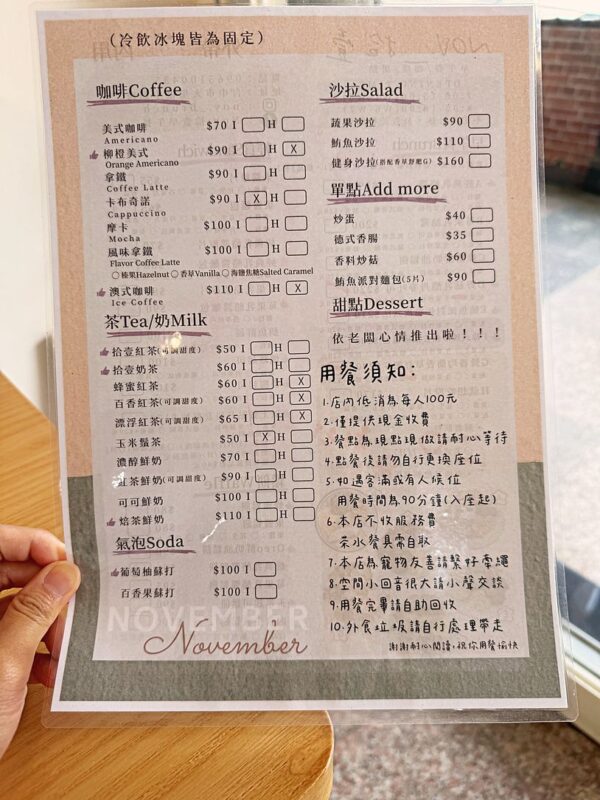 (冷飲冰塊皆為固定)
咖啡Coffee
美式咖啡 $70 I H
Americano
柳橙美式 $90 I H X
Orange Americano
拿鐵 $90 I H
Coffee Latte
卡布奇諾 $90 I X H
Cappuccino
摩卡 $100 I H
Mocha
風味拿鐵 $100 I H
Flavor Coffee Latte
榛果Hazelnut 香草Vanilla 海鹽焦糖Salted Caramel
澳式咖啡 $110 I H X
Ice Coffee
茶Tea/奶Milk
拾壹紅茶(可調甜度) $50 I H
拾壹奶茶 $60 I H
蜂蜜紅茶 $60 I H X
百香紅茶(可調甜度) $60 I H X
漂浮紅茶(可調甜度) $65 I H X
玉米鬚茶 $50 I X H
濃醇鮮奶 $70 I H
紅茶鮮奶(可調甜度) $90 I H
可可鮮奶 $100 I H
焙茶鮮奶 $110 I H
氣泡Soda
葡萄柚蘇打 $100 I
百香果蘇打 $100 I
NOVEMBER
November
沙拉Salad
蔬果沙拉 $90
鮪魚沙拉 $110
健身沙拉(搭配香草舒肥G) $160
單點Add more
炒蛋 $40
德式香腸 $35
香料炒菇 $60
鮪魚派對麵包(5片) $90
甜點Dessert
依老闆心情推出啦！！！
用餐須知：
1.店內低消為每人100元
2.僅提供現金收費
3.餐點為現點現做請耐心等待
4.點餐後請勿自行更換座位
5.如遇客滿或有人候位
用餐時間為90分鐘(入座起)
6.本店不收服務費
茶水餐具需自取
7.本店為寵物友善請繫好牽繩
8.空間小回音很大請小聲交談
9.用餐完畢請自助回收
10.外食垃圾請自行處理帶走
謝謝耐心閱讀,祝你用餐愉快